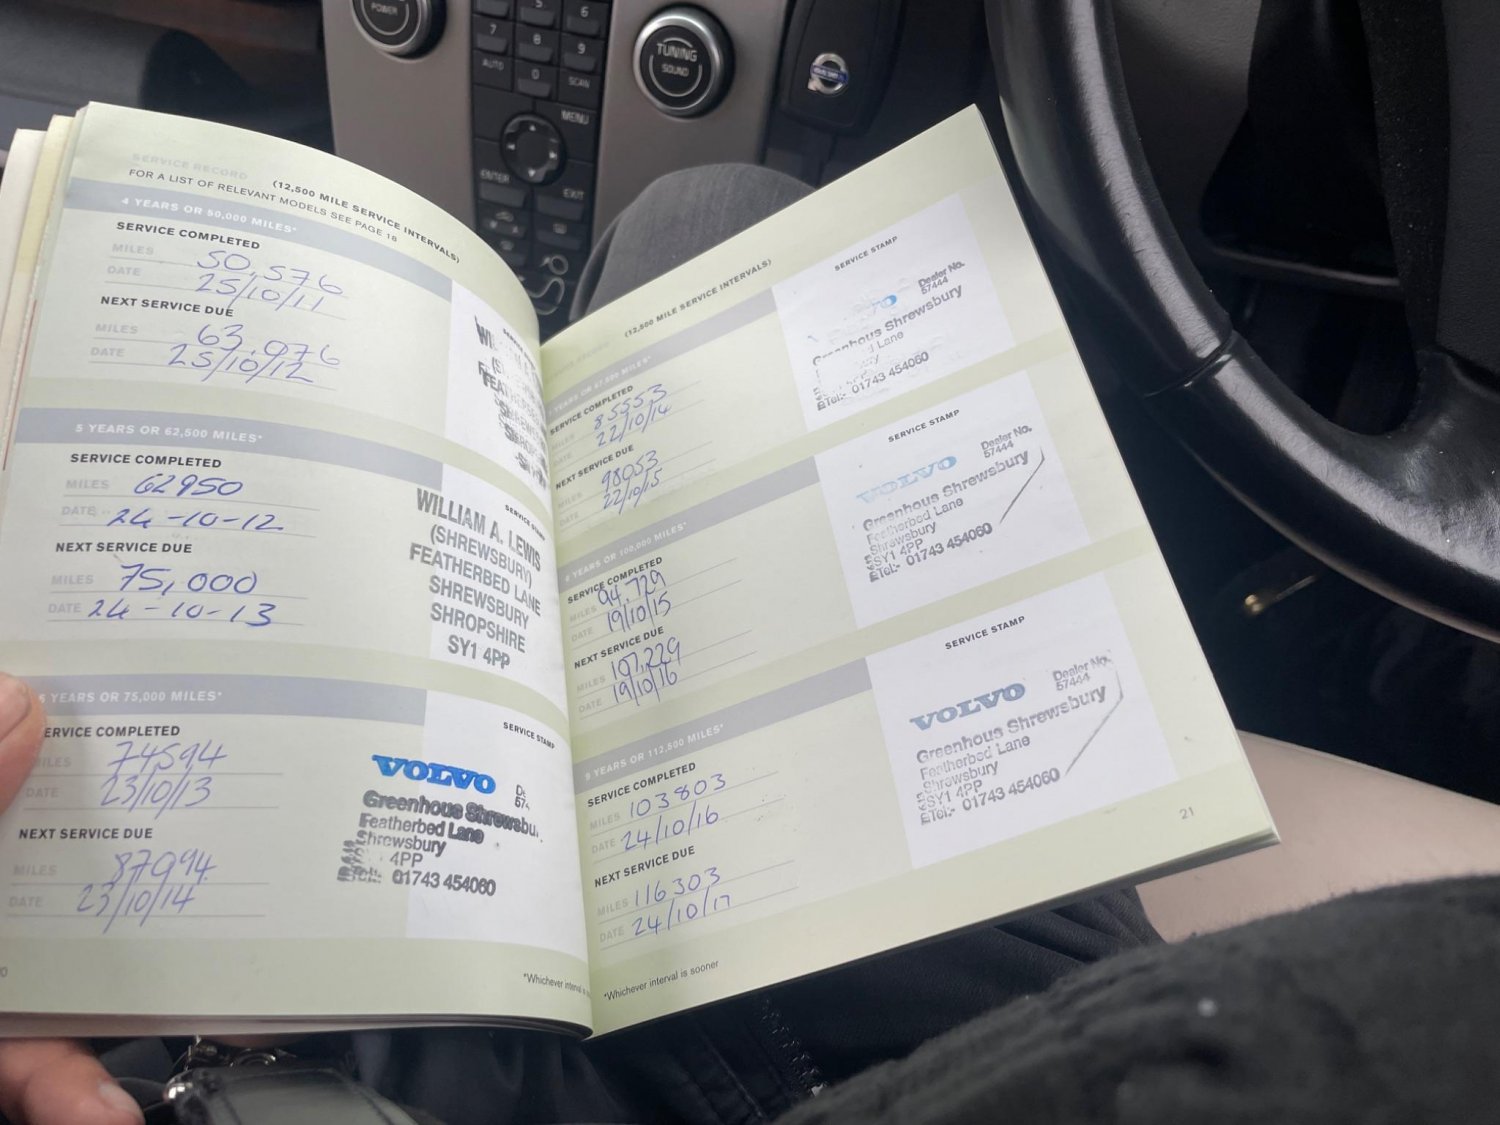 POWER
5
6
7
8
9
AUTO
0
SCAN
MENU
ENTER
EXIT
TUNING
SOUND
VOLVO
SERVICE RECORD (12,500 MILE SERVICE INTERVALS)
FOR A LIST OF RELEVANT MODELS SEE PAGE 18
4 YEARS OR 50,000 MILES*
SERVICE COMPLETED
MILES 50,576
DATE 25/10/11
NEXT SERVICE DUE
MILES 63,076
DATE 25/10/12
5 YEARS OR 62,500 MILES*
SERVICE COMPLETED
MILES 62950
DATE 24-10-12
NEXT SERVICE DUE
MILES 75,000
DATE 24-10-13
SERVICE STAMP
WILLIAM A. LEWIS
(SHREWSBURY)
FEATHERBED LANE
SHREWSBURY
SHROPSHIRE
SY1 4PP
6 YEARS OR 75,000 MILES*
SERVICE COMPLETED
MILES 74594
DATE 23/10/13
NEXT SERVICE DUE
MILES 87094
DATE 23/10/14
SERVICE STAMP
VOLVO
Greenhous Shrewsbu
Featherbed Lane
Shrewsbury
4PP
01743 454060
*Whichever interval is
(12,500 MILE SERVICE INTERVALS)
YEARS OR 87,500 MILES*
SERVICE COMPLETED
MILES 85553
DATE 22/10/14
NEXT SERVICE DUE
MILES 98053
DATE 22/10/15
SERVICE STAMP
Dealer No.
57444
Greenhous Shrewsbury
Tel:- 01743 454060
8 YEARS OR 100,000 MILES*
SERVICE COMPLETED
MILES 94,729
DATE 19/10/15
NEXT SERVICE DUE
MILES 107,229
DATE 19/10/16
SERVICE STAMP
VOLVO
Dealer No.
57444
Greenhous Shrewsbury
Featherbed Lane
Shrewsbury
SY1 4PP
Tel:- 01743 454060
9 YEARS OR 112,500 MILES*
SERVICE COMPLETED
MILES 103803
DATE 24/10/16
NEXT SERVICE DUE
MILES 116303
DATE 24/10/17
SERVICE STAMP
VOLVO
Dealer No.
57444
Greenhous Shrewsbury
Featherbed Lane
Shrewsbury
SY1 4PP
Tel:- 01743 454060
*Whichever interval is sooner
21